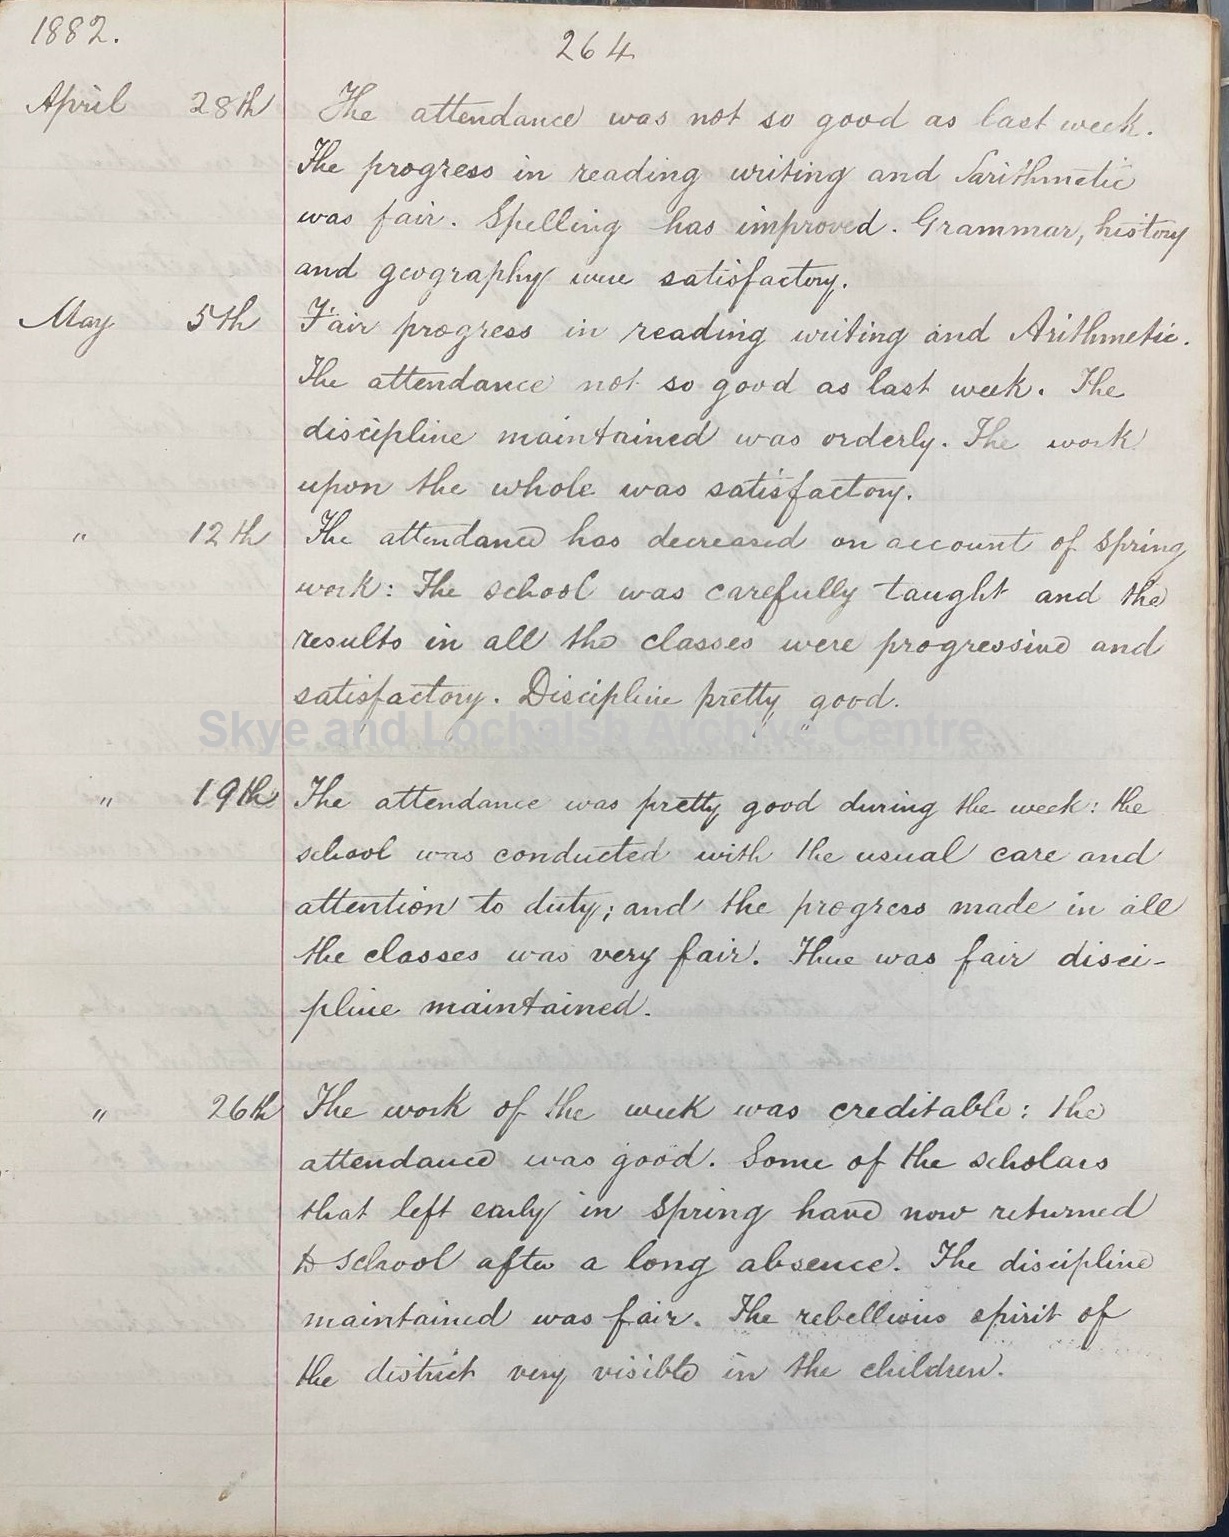 1882.
264
April 28th The attendance was not so good as last week.
The progress in reading writing and arithmetic
was fair. Spelling has improved. Grammar, history
and geography were satisfactory.
May 5th Fair progress in reading writing and Arithmetic.
The attendance not so good as last week. The
discipline maintained was orderly. The work
upon the whole was satisfactory.
" 12th The attendance has decreased on account of spring
work: The school was carefully taught and the
results in all the classes were progressive and
satisfactory. Discipline pretty good.
Skye and Lochalsh Archive Centre
" 19th The attendance was pretty good during the week: the
school was conducted with the usual care and
attention to duty; and the progress made in all
the classes was very fair. There was fair disci-
pline maintained.
" 26th The work of the week was creditable: the
attendance was good. Some of the scholars
that left early in spring have now returned
to school after a long absence. The discipline
maintained was fair. The rebellious spirit of
the district very visible in the children.